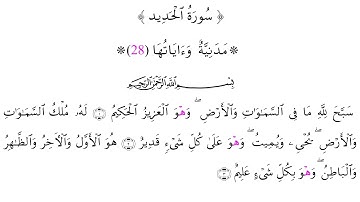 ﴿ سُورَةُ الْحَدِيدِ ﴾
* مَدَنِيَّةٌ وَءَايَاتُهَا (28) *
بِسْمِ اللَّهِ الرَّحْمَٰنِ الرَّحِيمِ
سَبَّحَ لِلَّهِ مَا فِى السَّمَٰوَٰتِ وَالْأَرْضِ ۖ وَهْوَ الْعَزِيزُ الْحَكِيمُ ۝١ لَهُۥ مُلْكُ السَّمَٰوَٰتِ
وَالْأَرْضِ ۖ يُحْىِۦ وَيُمِيتُ ۖ وَهْوَ عَلَىٰ كُلِّ شَىْءٍ قَدِيرٌ ۝٢ هُوَ الْأَوَّلُ وَالْأَخِرُ وَالظَّٰهِرُ
وَالْبَاطِنُ ۖ وَهْوَ بِكُلِّ شَىْءٍ عَلِيمٌ ۝٣